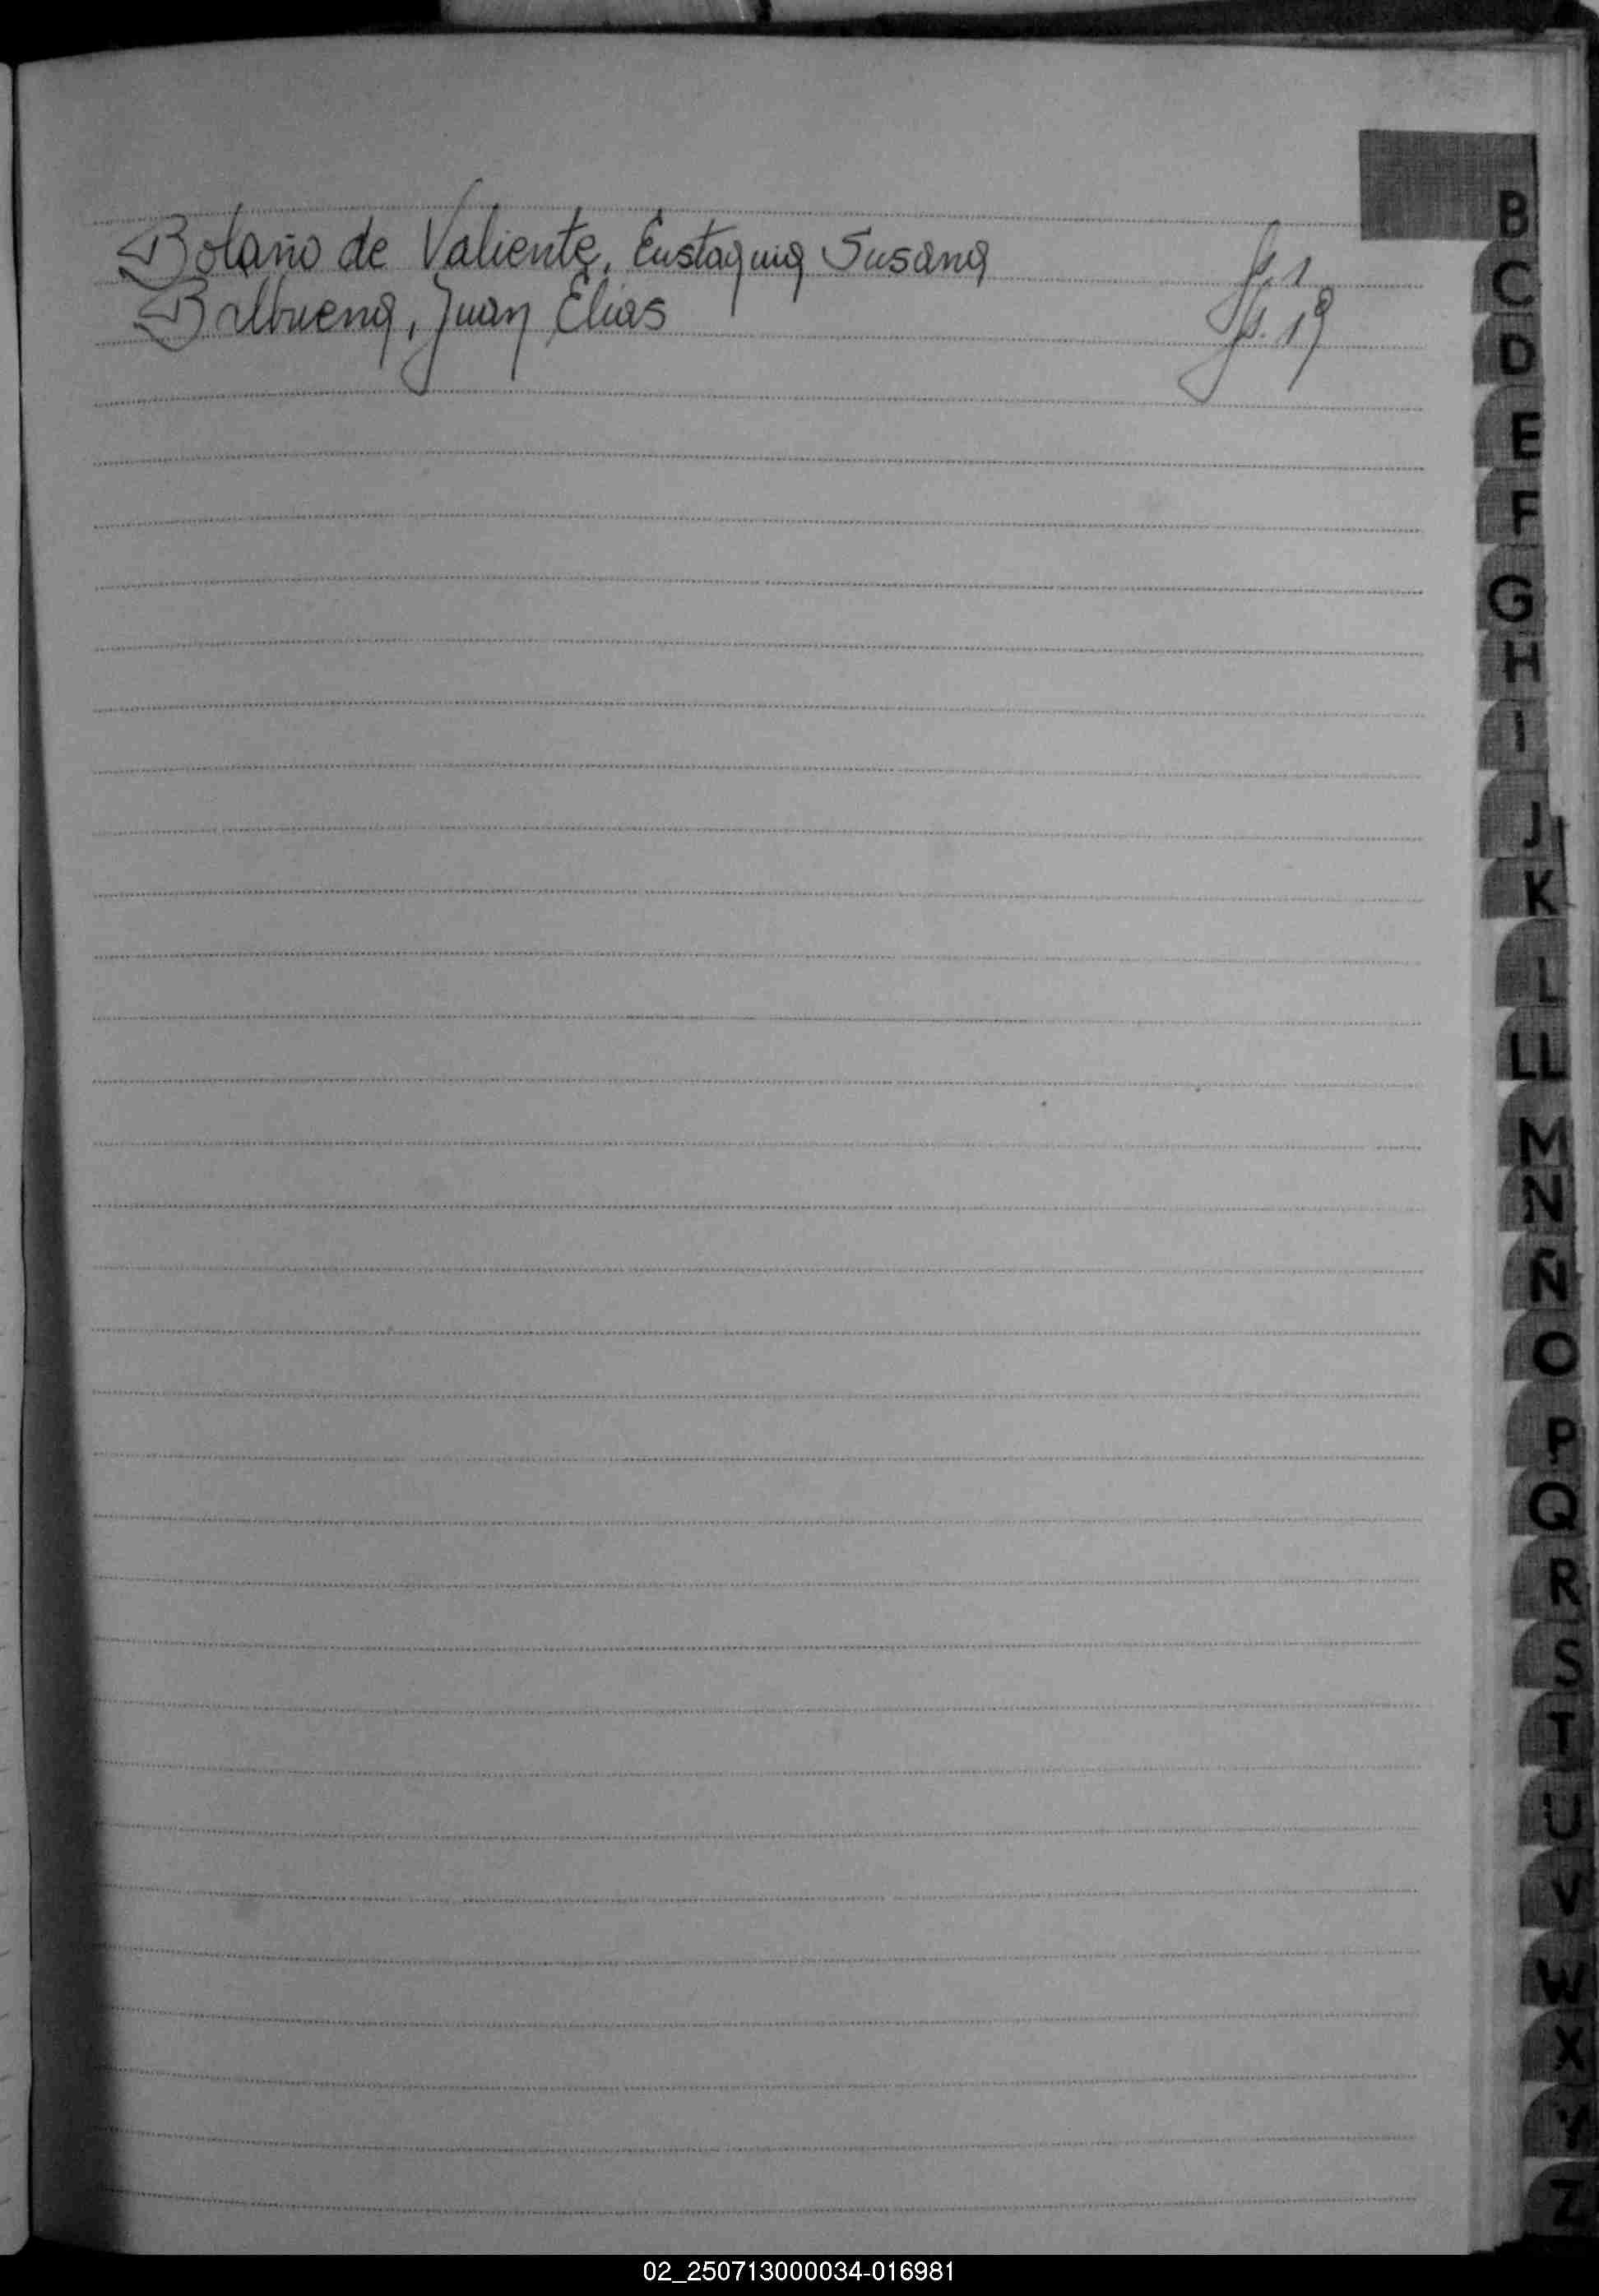 Bolaño de Valiente, Eustaquia Susana fs. 1
Balbuena, Juan Elias fs. 19
B
C
D
E
F
G
H
I
J
K
L
LL
M
N
Ñ
O
P
Q
R
S
T
U
V
W
X
Y
Z
02_250713000034-016981